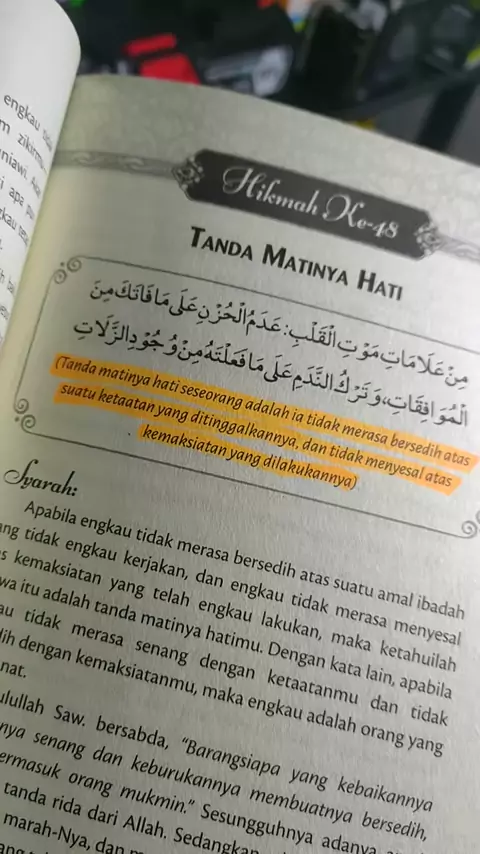 engkau
zikirm
uniawi.
i apa
kau
Hikmah Ke-48
TANDA MATINYA HATI
مِنْ عَلَامَاتِ مَوْتِ الْقَلْبِ: عَدَمُ الْحُزْنِ عَلَى مَا فَاتَكَ مِنَ
الْمُوَافِقَاتِ، وَتَرْكُ النَّدَمِ عَلَى مَا فَعَلْتَهُ مِنْ وُجُوْدِ الزَّلَاتِ
(Tanda matinya hati seseorang adalah ia tidak merasa bersedih atas
suatu ketaatan yang ditinggalkannya, dan tidak menyesal atas
kemaksiatan yang dilakukannya)
Syarah:
Apabila engkau tidak merasa bersedih atas suatu amal ibadah
ng tidak engkau kerjakan, dan engkau tidak merasa menyesal
s kemaksiatan yang telah engkau lakukan, maka ketahuilah
wa itu adalah tanda matinya hatimu. Dengan kata lain, apabila
au tidak merasa senang dengan ketaatanmu dan tidak
dih dengan kemaksiatanmu, maka engkau adalah orang yang
nat.
ulullah Saw. bersabda, "Barangsiapa yang kebaikannya
nya senang dan keburukannya membuatnya bersedih,
ermasuk orang mukmin." Sesungguhnya adanya
tanda rida dari Allah. Sedangkan
marah-Nya, dan